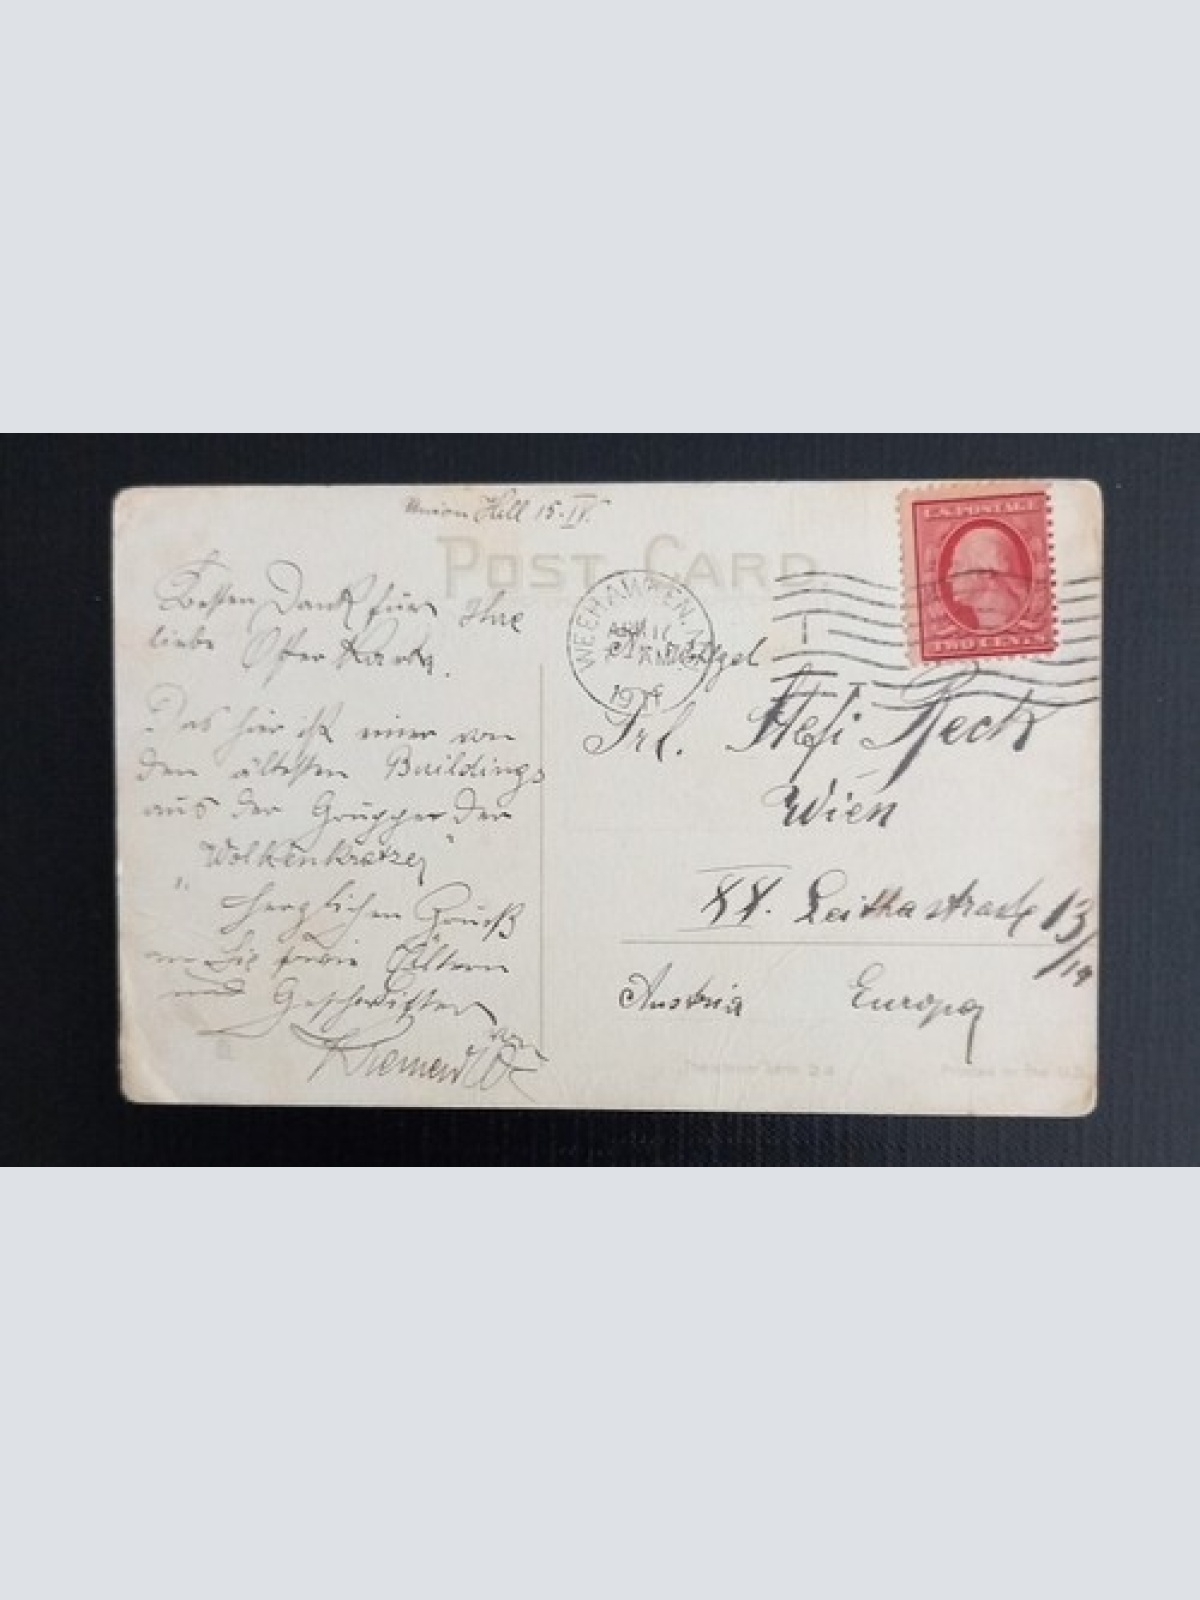 Union Hill 15-IV.
POST CARD
Besten Dank für Ihre
liebe Oster Karte.
Das hier ist einer von
den ältesten Buildings
aus der Gruppe der
"Wolkenkratzer"
Herzlichen Gruß
an Sie sowie Eltern
und Geschwister
von
WEEHAWKEN, N.J.
U.S. POSTAGE
TWO CENTS
Frl. Stefi Reck
Wien
XX. Leithastrasse 13/19
Austria Europa
Printed in the U.S.